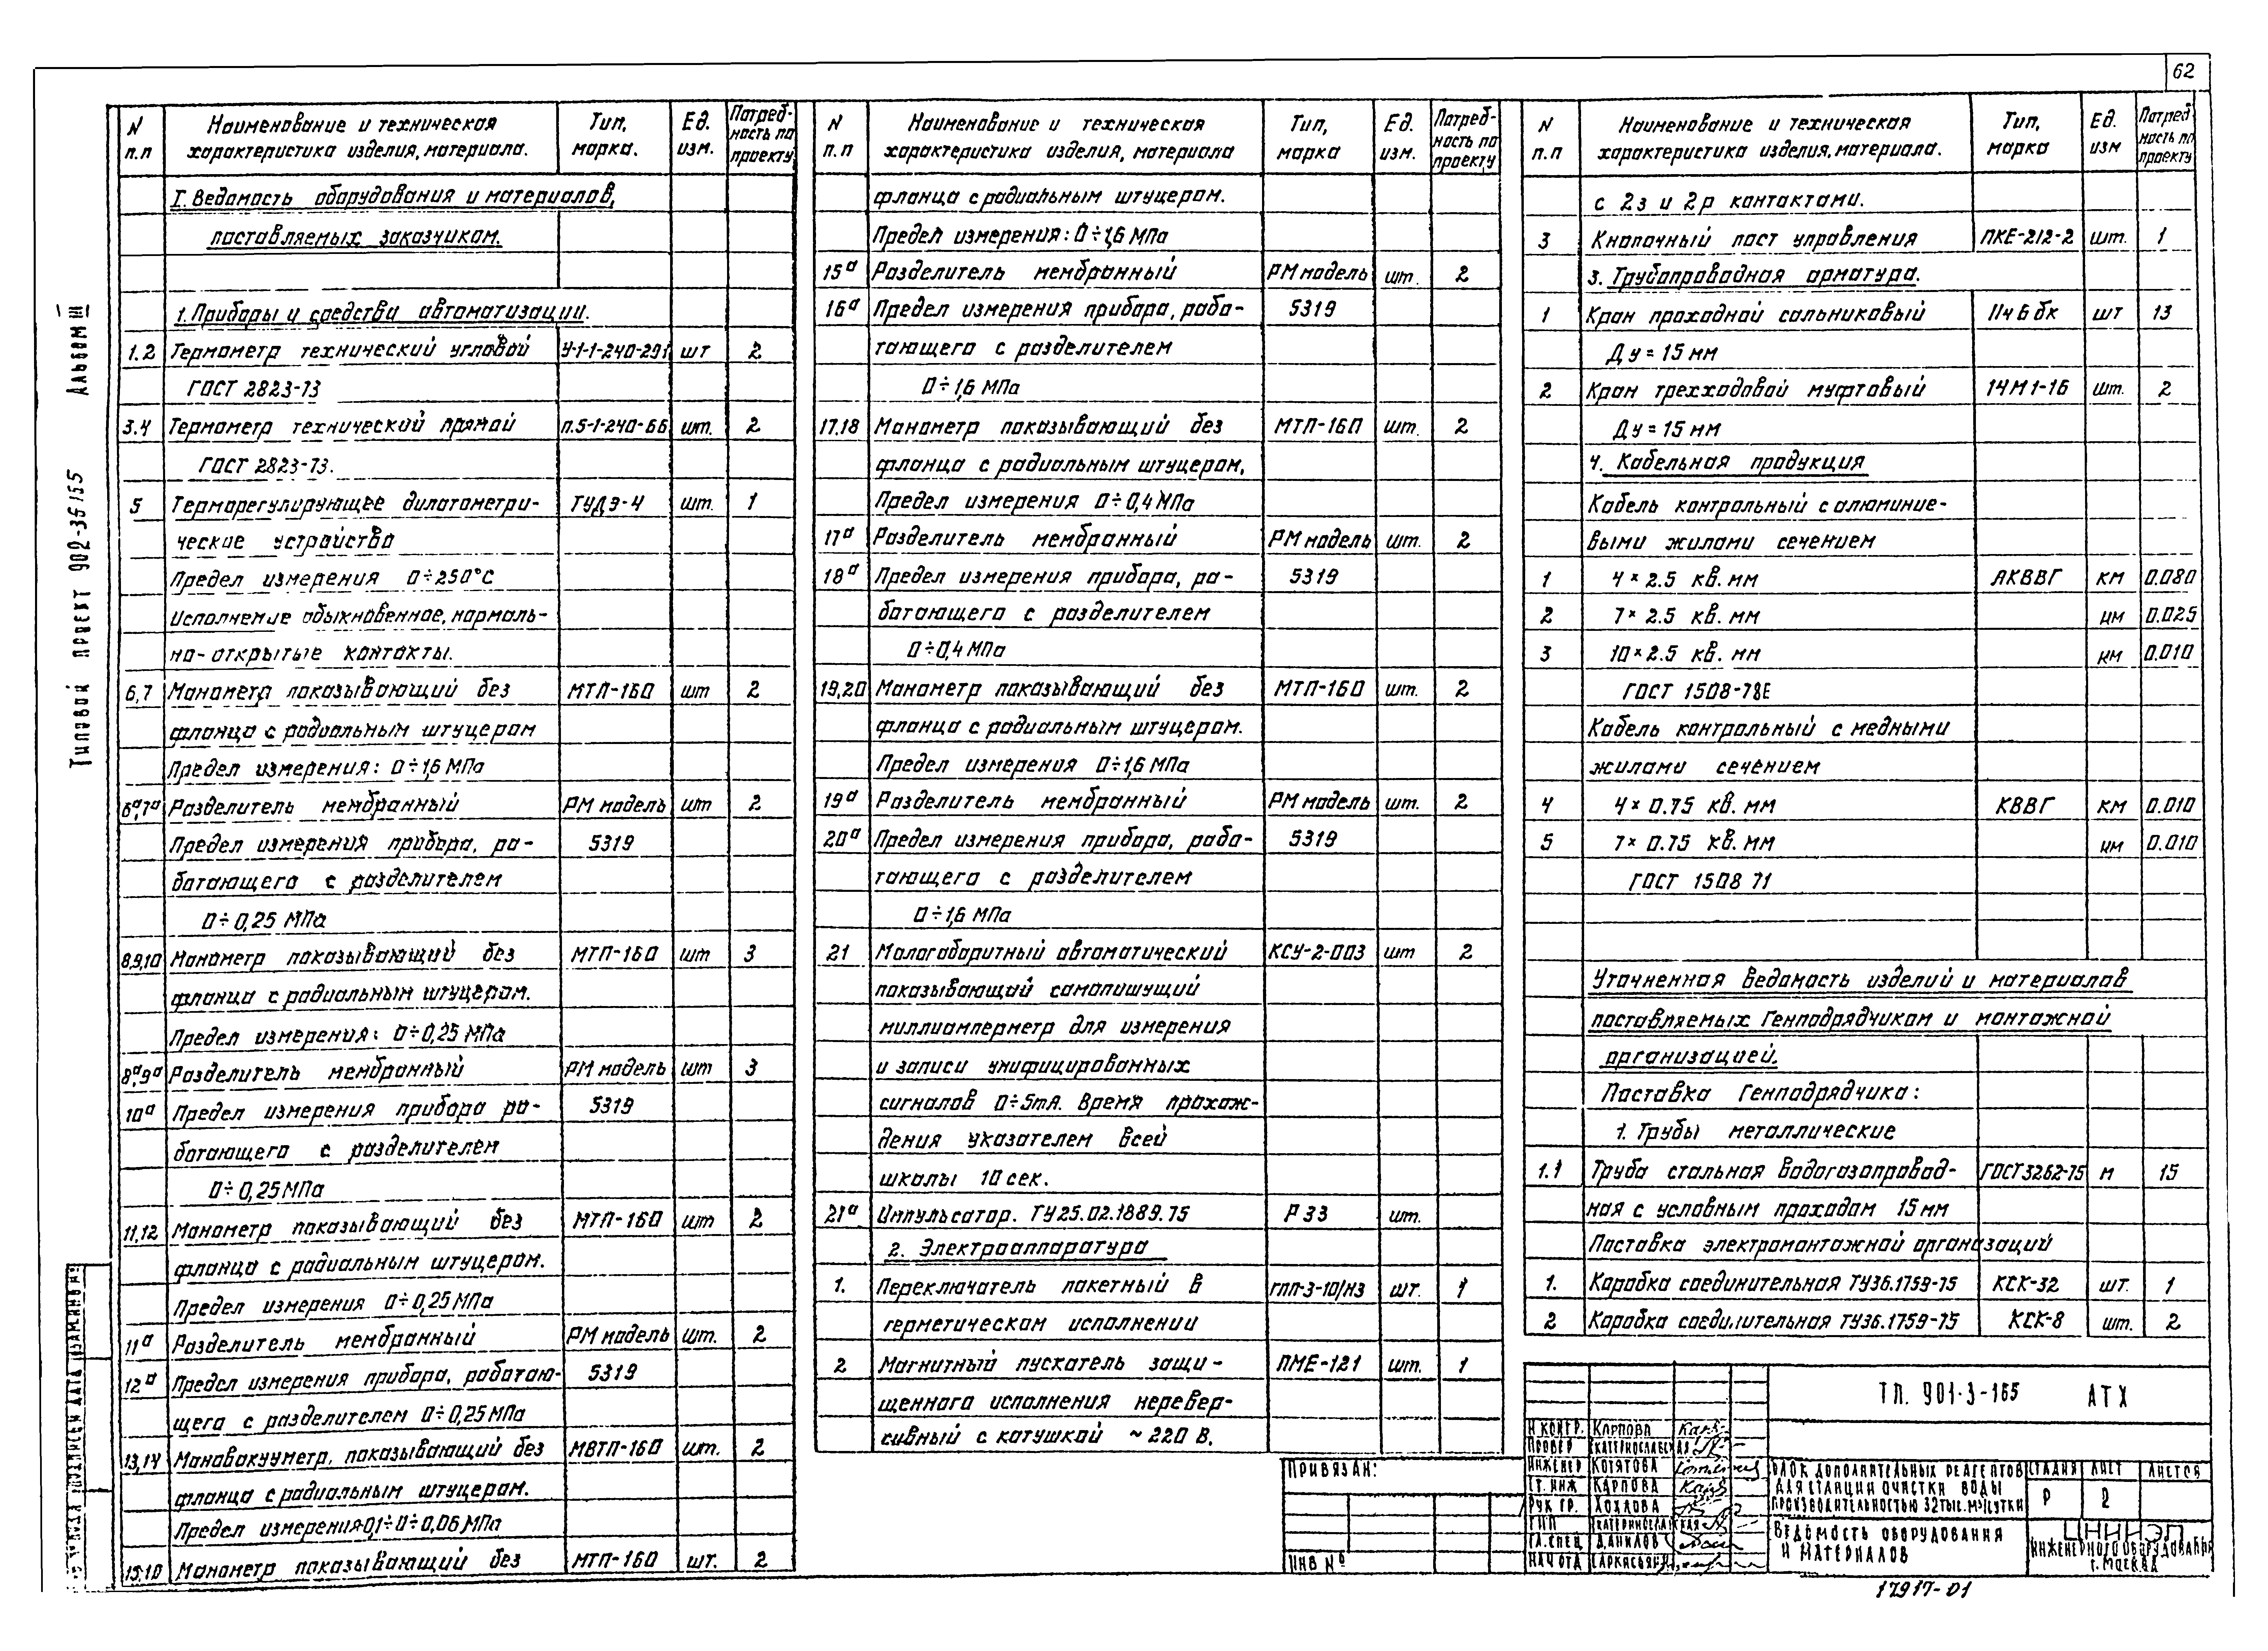 62
Альбом III
Типовой проект 902-3б 155
N п.п Наименование и техническая характеристика изделия, материала. Тип, марка. Ед. изм. Потребность по проекту
I. Ведомость оборудования и материалов,
поставляемых заказчиком.
1. Приборы и средства автоматизации.
1.2 Термометр технический угловой У-1-1-240-291 шт 2
ГОСТ 2823-73
3.4 Термометр технический прямой П.5-1-240-66 шт. 2
ГОСТ 2823-73.
5 Терморегулирующее дилатометри- ТУДЭ-4 шт. 1
ческие устройство
Предел измерения 0÷250°С
Исполнение обыкновенное, нормаль-
но-открытые контакты.
6,7 Манометр показывающий без МТП-160 шт 2
фланца с радиальным штуцером
Предел измерения: 0÷1,6 МПа
6а,7а Разделитель мембранный РМ модель шт 2
Предел измерения прибора, ра- 5319
ботающего с разделителем
0÷0,25 МПа
8,9,10 Манометр показывающий без МТП-160 шт 3
фланца с радиальным штуцером.
Предел измерения: 0÷0,25 МПа
8а,9а Разделитель мембранный РМ модель шт 3
10а Предел измерения прибора ра- 5319
ботающего с разделителем
0÷0,25 МПа
11,12 Манометр показывающий без МТП-160 шт 2
фланца с радиальным штуцером.
Предел измерения 0÷0,25 МПа
11а Разделитель мембранный РМ модель шт. 2
12а Предел измерения прибора, работаю- 5319
щего с разделителем 0÷0,25 МПа
13,14 Мановакууметр, показывающий без МВТП-160 шт. 2
фланца с радиальным штуцером.
Предел измерения-0,1÷0÷0,06 МПа
15,10 Манометр показывающий без МТП-160 шт. 2
N п.п Наименование и техническая характеристика изделия, материала Тип, марка Ед. изм. Потребность по проекту
фланца с радиальным штуцером.
Предел измерения: 0÷1,6 МПа
15а Разделитель мембранный РМ модель шт. 2
16а Предел измерения прибора, рабо- 5319
тающего с разделителем
0÷1,6 МПа
17,18 Манометр показывающий без МТП-160 шт. 2
фланца с радиальным штуцером,
Предел измерения 0÷0,4 МПа
17а Разделитель мембранный РМ модель шт. 2
18а Предел измерения прибора, ра- 5319
ботающего с разделителем
0÷0,4 МПа
19,20 Манометр показывающий без МТП-160 шт. 2
фланца с радиальным штуцером.
Предел измерения 0÷1,6 МПа
19а Разделитель мембранный РМ модель шт. 2
20а Предел измерения прибора, рабо- 5319
тающего с разделителем
0÷1,6 МПа
21 Малогабаритный автоматический КСУ-2-003 шт 2
показывающий самопишущий
миллиамперметр для измерения
и записи унифицированных
сигналов 0÷5mA. Время прохож-
дения указателем всей
шкалы 10 сек.
21а Импульсатор. ТУ25.02.1889.75 Р 33 шт.
2. Электроаппаратура
1. Переключатель пакетный в ГПП-3-10/Н3 шт. 1
герметическом исполнении
2 Магнитный пускатель защи- ПМЕ-121 шт. 1
щенного исполнения неревер-
сивный с катушкой ~ 220 В.
N п.п Наименование и техническая характеристика изделия, материала. Тип, марка Ед. изм Потребность по проекту
с 2з и 2р контактами.
3 Кнопочный пост управления ПКЕ-212-2 шт. 1
3. Трубопроводная арматура.
1 Кран проходной сальниковый 11ч 6 бк шт 13
Ду = 15 мм
2 Кран трехходовой муфтовый 14М1-16 шт. 2
Ду = 15 мм
4. Кабельная продукция
Кабель контрольный с алюминие-
выми жилами сечением
1 4×2.5 кв. мм АКВВГ км 0.080
2 7×2.5 кв. мм км 0.025
3 10×2.5 кв. мм км 0.010
ГОСТ 1508-78Е
Кабель контрольный с медными
жилами сечением
4 4×0.75 кв. мм КВВГ км 0.010
5 7×0.75 кв. мм км 0.010
ГОСТ 1508 71
Уточненная ведомость изделий и материалов
поставляемых Генподрядчиком и монтажной
организацией.
Поставка Генподрядчика:
1. Трубы металлические
1.1 Труба стальная водогазопровод- ГОСТ 3262-75 м 15
ная с условным проходом 15 мм
Поставка электромонтажной организаций
1. Коробка соединительная ТУ36.1759-75 КСК-32 шт. 1
2 Коробка соединительная ТУ36.1759-75 КСК-8 шт. 2
Привязан:
Инв №
Н контр. Карпова
Провер Екатеринославская
Инженер Котятова
Ст. инж Карпова
Рук гр. Хохлова
ГИП Екатеринославская
Гл. спец Данилов
Нач отд
ТП. 901-3-165 АТХ
Блок дополнительных реагентов
для станции очистки воды
производительностью 32 тыс. м³/сутки
Стадия Лист Листов
Р 2
Ведомость оборудования
и материалов
ЦНИИЭП
инженерного оборудования
г. Москва
17917-01